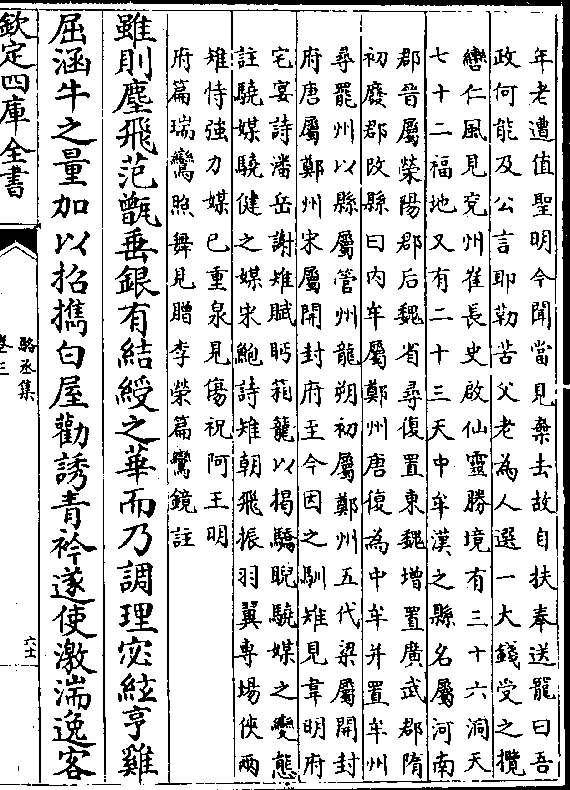 年老遭值聖明今聞當見棄去故自扶奉送龍曰吾
政何能及公言耶勤苦父老為人選一大錢受之攬
轡仁風見兖州崔長史啟仙靈勝境有三十六洞天
七十二福地又有二十三天中牟漢之縣名屬河南
郡晉屬榮陽郡后魏省尋復置東魏增置廣武郡隋
初廢郡改縣曰内牟屬鄭州唐復為中牟并置牟州
尋罷州以縣屬管州龍朔初屬鄭州五代梁屬開封
府唐屬鄭州宋屬開封府至今因之馴雉見韋明府
宅宴詩潘岳謝雉賦眄箱籠以揭驕睨驍媒之變態
註驍媒驍健之媒宋鮑詩雉朝飛振羽翼專場俠兩
雉恃強力媒已重泉見傷祝阿王明
府篇瑞鸞照舞見贈李榮篇鸞鏡註
雖則塵飛范甑垂銀有結綬之華而乃調理宓絃亨雞
屈涵牛之量加以招攜白屋勸誘青衿遂使激湍逸客
欽定四庫全書
駱丞集
卷三
六十